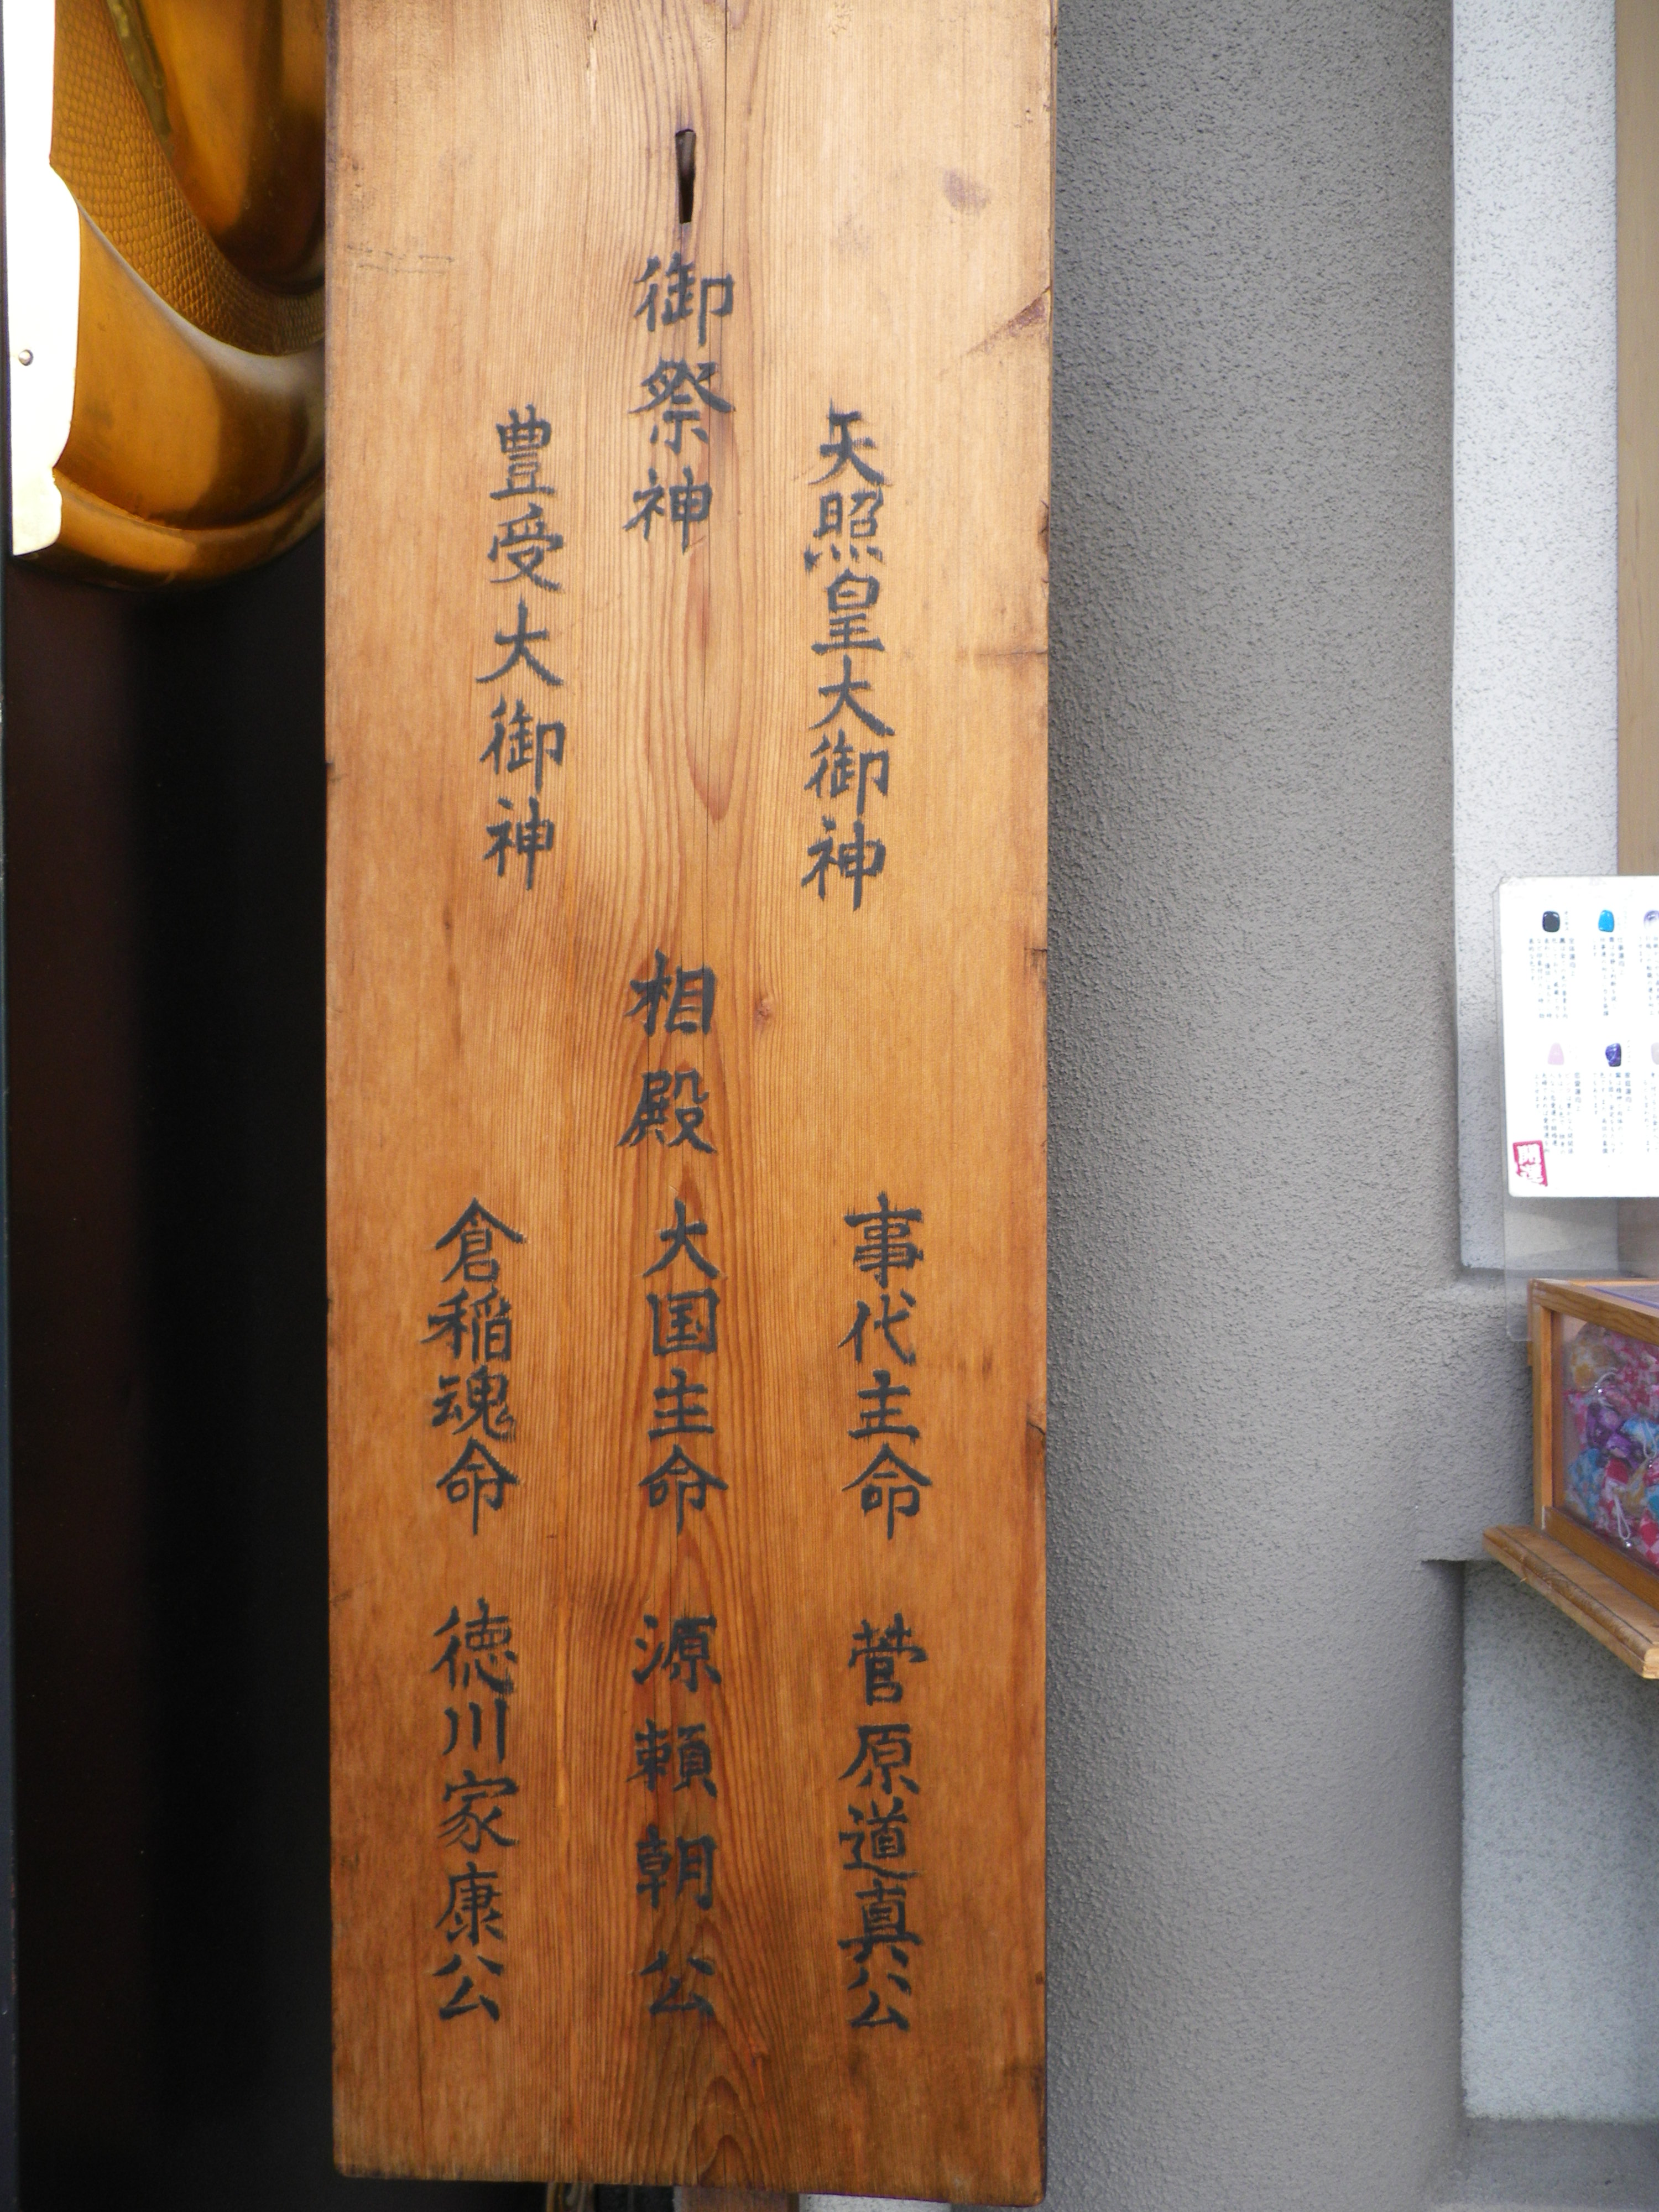 御祭神
天照皇大御神
豊受大御神
相殿
事代主命
大国主命
倉稲魂命
菅原道真公
源頼朝公
徳川家康公